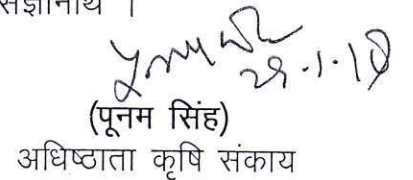 संज्ञानार्थ ।
29.1.18
(पूनम सिंह)
अधिष्ठाता कृषि संकाय